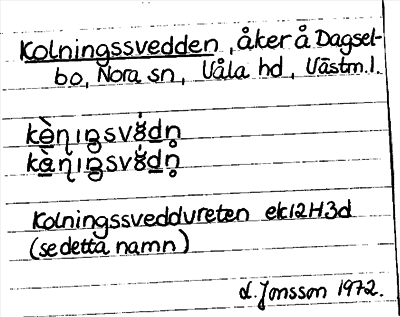 Kolningssvedden, åker å Dagsel-
bo, Nora sn, Våla hd, Västm.l.
Kolningssveddureten ek12H3d
(se detta namn)
L. Jonsson 1972.